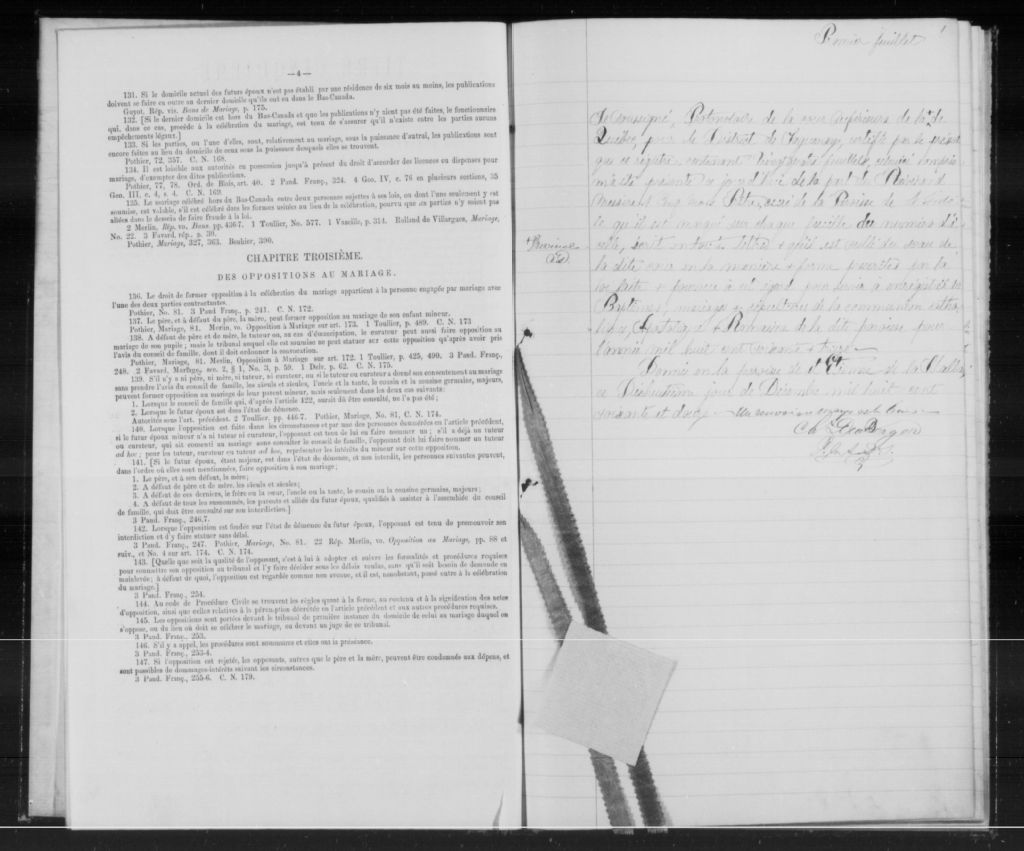 —4—
131. Si le domicile actuel des futurs époux n'est pas établi par une résidence de six mois au moins, les publications
doivent se faire en outre au dernier domicile qu'ils ont eu dans le Bas-Canada.
Guyot, Rép. vis. Bans de Mariage, p. 175.
132. [Si le dernier domicile est hors du Bas-Canada et que les publications n'y aient pas été faites, le fonctionnaire
qui, dans ce cas, procède à la célébration du mariage, est tenu de s'assurer qu'il n'existe entre les parties aucuns
empêchements légaux.]
133. Si les parties, ou l'une d'elles, sont, relativement au mariage, sous la puissance d'autrui, les publications sont
encore faites au lieu du domicile de ceux sous la puissance desquels elles se trouvent.
Pothier, 72, 357. C. N. 168.
134. Il est loisible aux autorités en possession jusqu'à présent du droit d'accorder des licences ou dispenses pour
mariage, d'exempter des dites publications.
Pothier, 77, 78. Ord. de Blois, art. 40. 2 Pand. Franç., 324. 4 Geo. IV, c. 76 en plusieurs sections, 35
Geo. III, c. 4, s. 4. C. N. 169.
135. Le mariage célébré hors du Bas-Canada entre deux personnes sujettes à ses lois, ou dont l'une seulement y est
soumise, est valable, s'il est célébré dans les formes usitées au lieu de la célébration, pourvu que les parties n'y soient pas
allées dans le dessein de faire fraude à la loi.
2 Merlin, Rép. vo. Bans, pp. 436-7. 1 Toullier, No. 577. 1 Vazeille, p. 314. Rolland de Villargues, Mariage,
No. 22. 3 Favard, rép., p. 39.
Pothier, Mariage, 327, 363. Bouhier, 390.
CHAPITRE TROISIÈME.
DES OPPOSITIONS AU MARIAGE.
136. Le droit de former opposition à la célébration du mariage appartient à la personne engagée par mariage avec
l'une des deux parties contractantes.
Pothier, No. 81. 3 Pand Franç. p. 241. C. N. 172.
137. Le père, et à défaut du père, la mère, peut former opposition au mariage de son enfant mineur.
Pothier, Mariage, 81. Merlin, vo. Opposition à Mariage sur art. 173. 1 Toullier, p. 489. C. N. 173
138. A défaut de père et de mère, le tuteur ou, au cas d'émancipation, le curateur peut aussi faire opposition au
mariage de son pupile; mais le tribunal auquel elle est soumise ne peut statuer sur cette opposition qu'après avoir pris
l'avis du conseil de famille, dont il doit ordonner la convocation.
Pothier, Mariage, 81. Merlin, Opposition à Mariage sur art. 172. 1 Toullier, p. 425, 490. 3 Pand. Franç.,
248. 2 Favard, Mariage, sec. 2, § 1, No. 3, p. 59. 1 Delv. p. 62. C. N. 175.
139. S'il n'y a ni père, ni mère, ni tuteur, ni curateur, ou si le tuteur ou curateur a donné son consentement au mariage
sans prendre l'avis du conseil de famille, les aïeuls et aïeules, l'oncle et la tante, le cousin et la cousine germains, majeurs,
peuvent former opposition au mariage de leur parent mineur, mais seulement dans les deux cas suivants:
1. Lorsque le conseil de famille qui, d'après l'article 122, aurait dû être consulté, ne l'a pas été;
2. Lorsque le futur époux est dans l'état de démence.
Autorités sous l'art. précédent. 2 Toullier, pp. 446-7. Pothier, Mariage, No. 81, C. N. 174.
140. Lorsque opposition est faite dans les circonstances et par une des personnes énumérées en l'article précédent,
si le futur époux mineur n'a ni tuteur ni curateur, l'opposant est tenu de lui en faire nommer un; s'il a déjà un tuteur
ou curateur, qui ait consenti au mariage sans consulter le conseil de famille, l'opposant doit lui faire nommer un tuteur
ad hoc; pour les tuteur, curateur ou tuteur ad hoc, représenter les intérêts du mineur sur cette opposition.
141. [Si le futur époux, étant majeur, est dans l'état de démence, et non interdit, les personnes suivantes peuvent,
dans l'ordre où elles sont mentionnées, faire opposition à son mariage;
1. Le père, et à son défaut, la mère;
2. A défaut de père et de mère, les aïeuls et aïeules;
3. A défaut de ces derniers, le frère ou la sœur, l'oncle ou la tante, le cousin ou la cousine germains, majeurs;
4. A défaut de tous les susnommés, les parents et alliés du futur époux, qualifiés à assister à l'assemblée du conseil
de famille, qui doit être consulté sur son interdiction.]
3 Pand. Franç., 246,7.
142. Lorsque l'opposition est fondée sur l'état de démence du futur époux, l'opposant est tenu de promouvoir son
interdiction et d'y faire statuer sans délai.
3 Pand. Franç., 247. Pothier, Mariage, No. 81. 22 Rép. Merlin, vo. Opposition au Mariage, pp. 88 et
suiv., et No. 4 sur art. 174. C. N. 174.
143. [Quelle que soit la qualité de l'opposant, c'est à lui à adopter et suivre les formalités et procédures requises
pour soumettre son opposition au tribunal et l'y faire décider sous les délais voulus, sans qu'il soit besoin de demande en
mainlevée; à défaut de quoi, l'opposition est regardée comme non avenue, et il est, nonobstant, passé outre à la célébration
du mariage.]
3 Pand. Franç., 254.
144. Au code de Procédure Civile se trouvent les règles quant à la forme, au contenu et à la signification des actes
d'opposition, ainsi que celles relatives à la péremption décrétée en l'article précédent et aux autres procédures requises.
145. Les oppositions sont portées devant le tribunal de première instance du domicile de celui au mariage duquel on
s'oppose, ou du lieu où doit se célébrer le mariage, ou devant un juge de ce tribunal.
3 Pand. Franç., 253.
146. S'il y a appel, les procédures sont sommaires et elles ont la préséance.
3 Pand. Franç., 253-4.
147. Si l'opposition est rejetée, les opposants, autres que le père et la mère, peuvent être condamnés aux dépens, et
sont passibles de dommages-intérêts suivant les circonstances.
3 Pand. Franç., 255-6. C. N. 179.
Premier feuillet 1
Je Soussigné, Protonotaire de la cour Supérieure de
Québec, pour le District de Saguenay, certifie par le présent
que ce registre contenant feuillets,
présenté de la part du Révérend
curé de la Paroisse de
sur chaque feuillet du numéro d'i
celle, écrit en toute lettre & qu'il est scellé du sceau de
la dite cour en la manière & forme prescrites par la
loi faite & à cet égard pour servir à enregistrer les
Baptêmes, mariages, & sépultures de la communion catho
lique, Apostolique & Romaine de la dite paroisse pour
l'année mil huit cent
Donné en la paroisse de St Etienne de la Malbaie
jour de Décembre mil huit cent